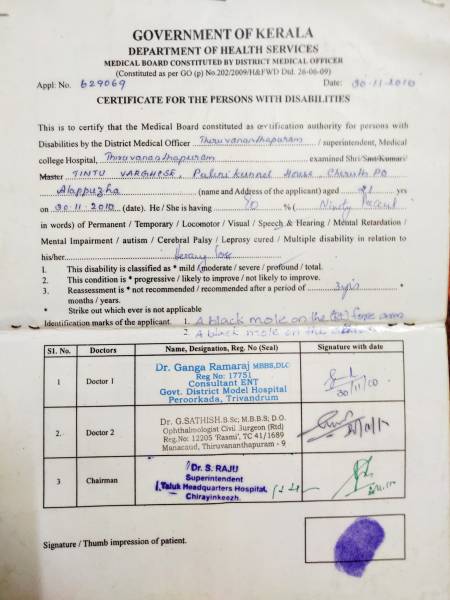 GOVERNMENT OF KERALA
DEPARTMENT OF HEALTH SERVICES
MEDICAL BOARD CONSTITUTED BY DISTRICT MEDICAL OFFICER
(Constituted as per GO (p) No.202/2009/H&FWD Dtd. 26-06-09)
Appl: No. 629069 Date: 30-11-2010
CERTIFICATE FOR THE PERSONS WITH DISABILITIES
This is to certify that the Medical Board constituted as certification authority for persons with
Disabilities by the District Medical Officer Thiruvananthapuram / superintendent, Medical
college Hospital, Thiruvananthapuram examined Shri/Smt/Kumari/
Master TINTU VARGHESE, House PO
Alappuzha (name and Address of the applicant) aged 21 yrs
on 30.11.2010 (date). He / She is having 90 % ( Ninety Percent
in words) of Permanent / Temporary / Locomotor / Visual / Speech & Hearing / Mental Retardation /
Mental Impairment / autism / Cerebral Palsy / Leprosy cured / Multiple disability in relation to
his/her hearing loss
1. This disability is classified as * mild / moderate / severe / profound / total.
2. This condition is * progressive / likely to improve / not likely to improve.
3. Reassessment is * not recommended / recommended after a period of 3 yrs *
months / years.
* Strike out which ever is not applicable
Identification marks of the applicant 1. A black mole on the (Rt) fore arm
2. A black mole on the
Sl. No. Doctors Name, Designation, Reg. No (Seal) Signature with date
1 Doctor 1 Dr. Ganga Ramaraj MBBS,DLC
Reg No: 17751
Consultant ENT
Govt. District Model Hospital
Peroorkada, Trivandrum
30/11/
2. Doctor 2 Dr. G.SATHISH.B.Sc; M.B.B.S; D.O.
Ophthalmologist Civil Surgeon (Rtd)
Reg.No: 12205 'Rasmi', TC 41/1689
Manacaud, Thiruvananthapuram - 9
3 Chairman Dr. S. RAJU
Superintendent
Taluk Headquarters Hospital,
Chirayinkeezh.
Signature / Thumb impression of patient.